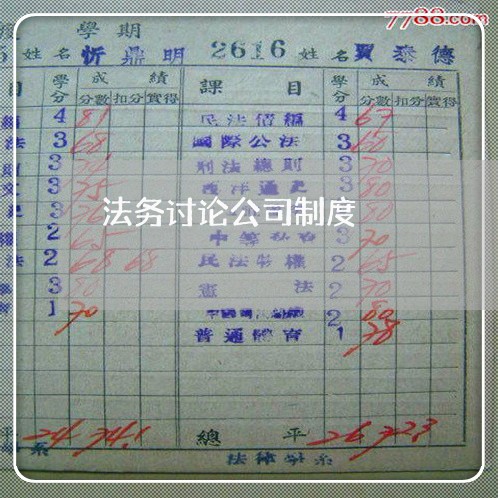 7788.com
學期
姓名 忻鼎明 2616 姓名 賈泰德
目 學分 成績 課目 學分 成績
分數 扣分 實得 分數 扣分 實得
4 81 民法債編 4 67
法 3 68 國際公法 3 60
3 刑法總則 3 70
3 75 西洋通史 3 80
3 80
法务讨论公司制度
2 65 3 70
法 2 68 68 民法物權 2 65
3 80 憲法 2 70
1 70 2 80
普通體育 1 78
平 24 74.1 總平 26 72.3
系 法律學系